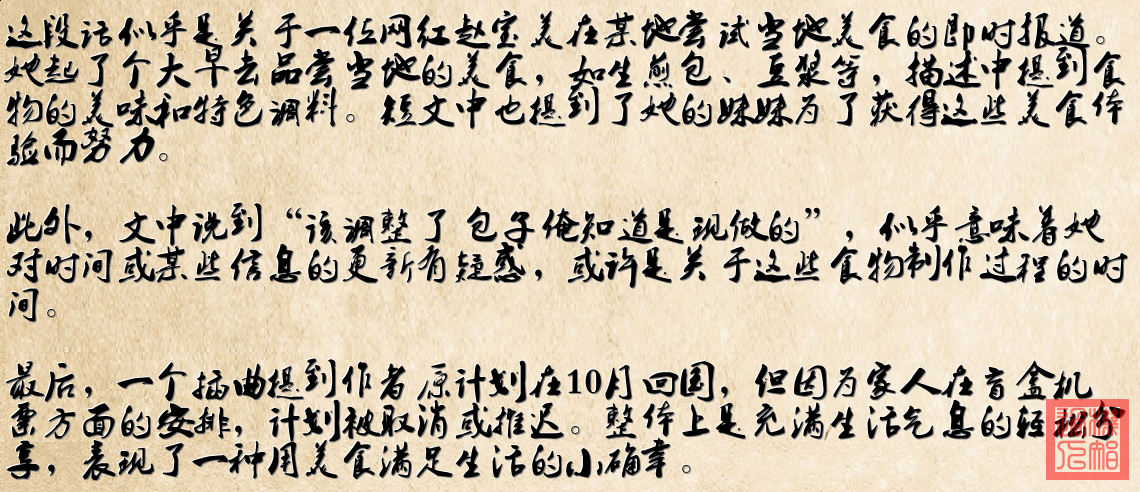 这段话似乎是关于一位网红赵宝美在某地尝试当地美食的即时报道。
她起了个大早去品尝当地的美食，如生煎包、豆浆等，描述中提到食
物的美味和特色调料。短文中也提到了她的妹妹为了获得这些美食体
验而努力。
此外，文中说到“该调整了包子俺知道是现做的”，似乎意味着她
对时间或某些信息的更新有疑惑，或许是关于这些食物制作过程的时
间。
最后，一个插曲提到作者原计划在10月回国，但因为家人在盲盒机
票方面的安排，计划被取消或推迟。整体上是充满生活气息的轻松分
享，表现了一种用美食满足生活的小确幸。